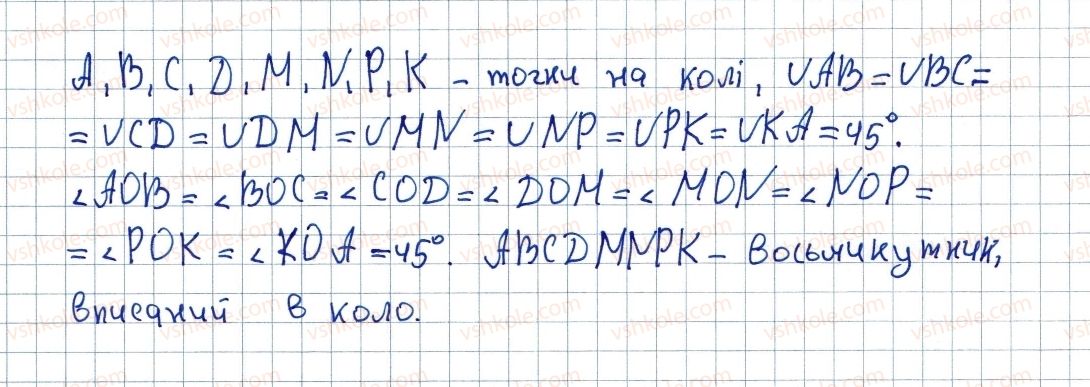 A, B, C, D, M, N, P, K – точки на колі, ∪AB = ∪BC =
= ∪CD = ∪DM = ∪MN = ∪NP = ∪PK = ∪KA = 45°.
∠AOB = ∠BOC = ∠COD = ∠DOM = ∠MON = ∠NOP =
= ∠POK = ∠KOA = 45°. ABCDMNPK – восьмикутник,
вписаний в коло.